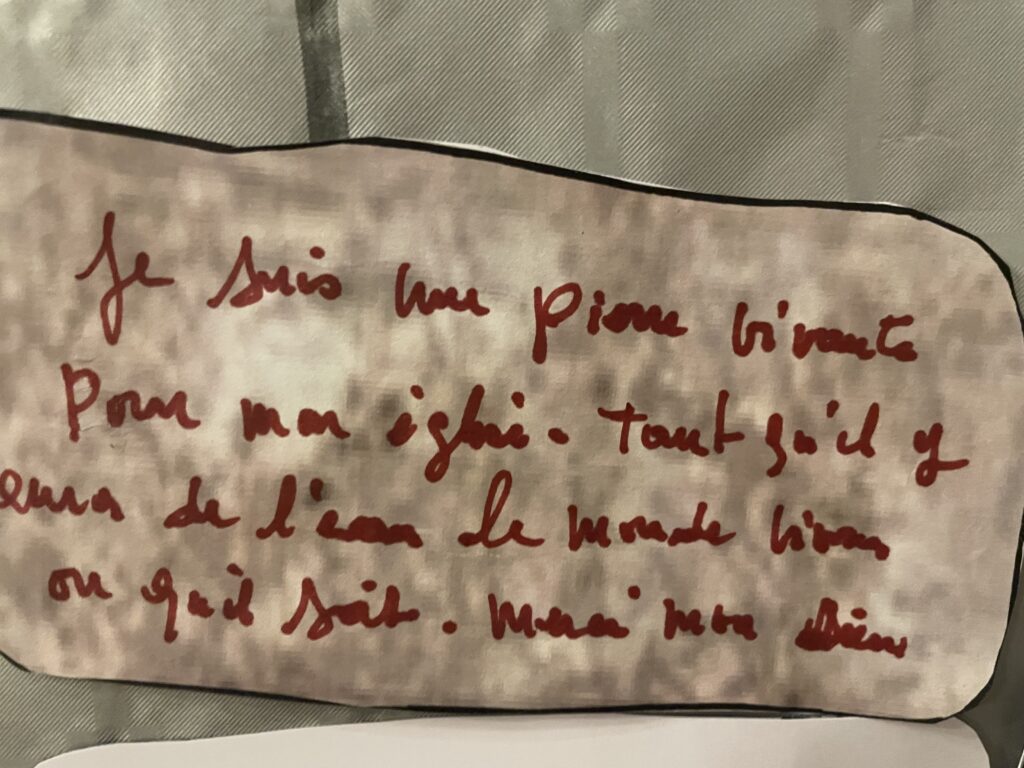 Je suis une pierre vivante
pour mon église. Tant qu'il y
aura de l'eau le monde vivra
ou qu'il soit. Merci mon Dieu